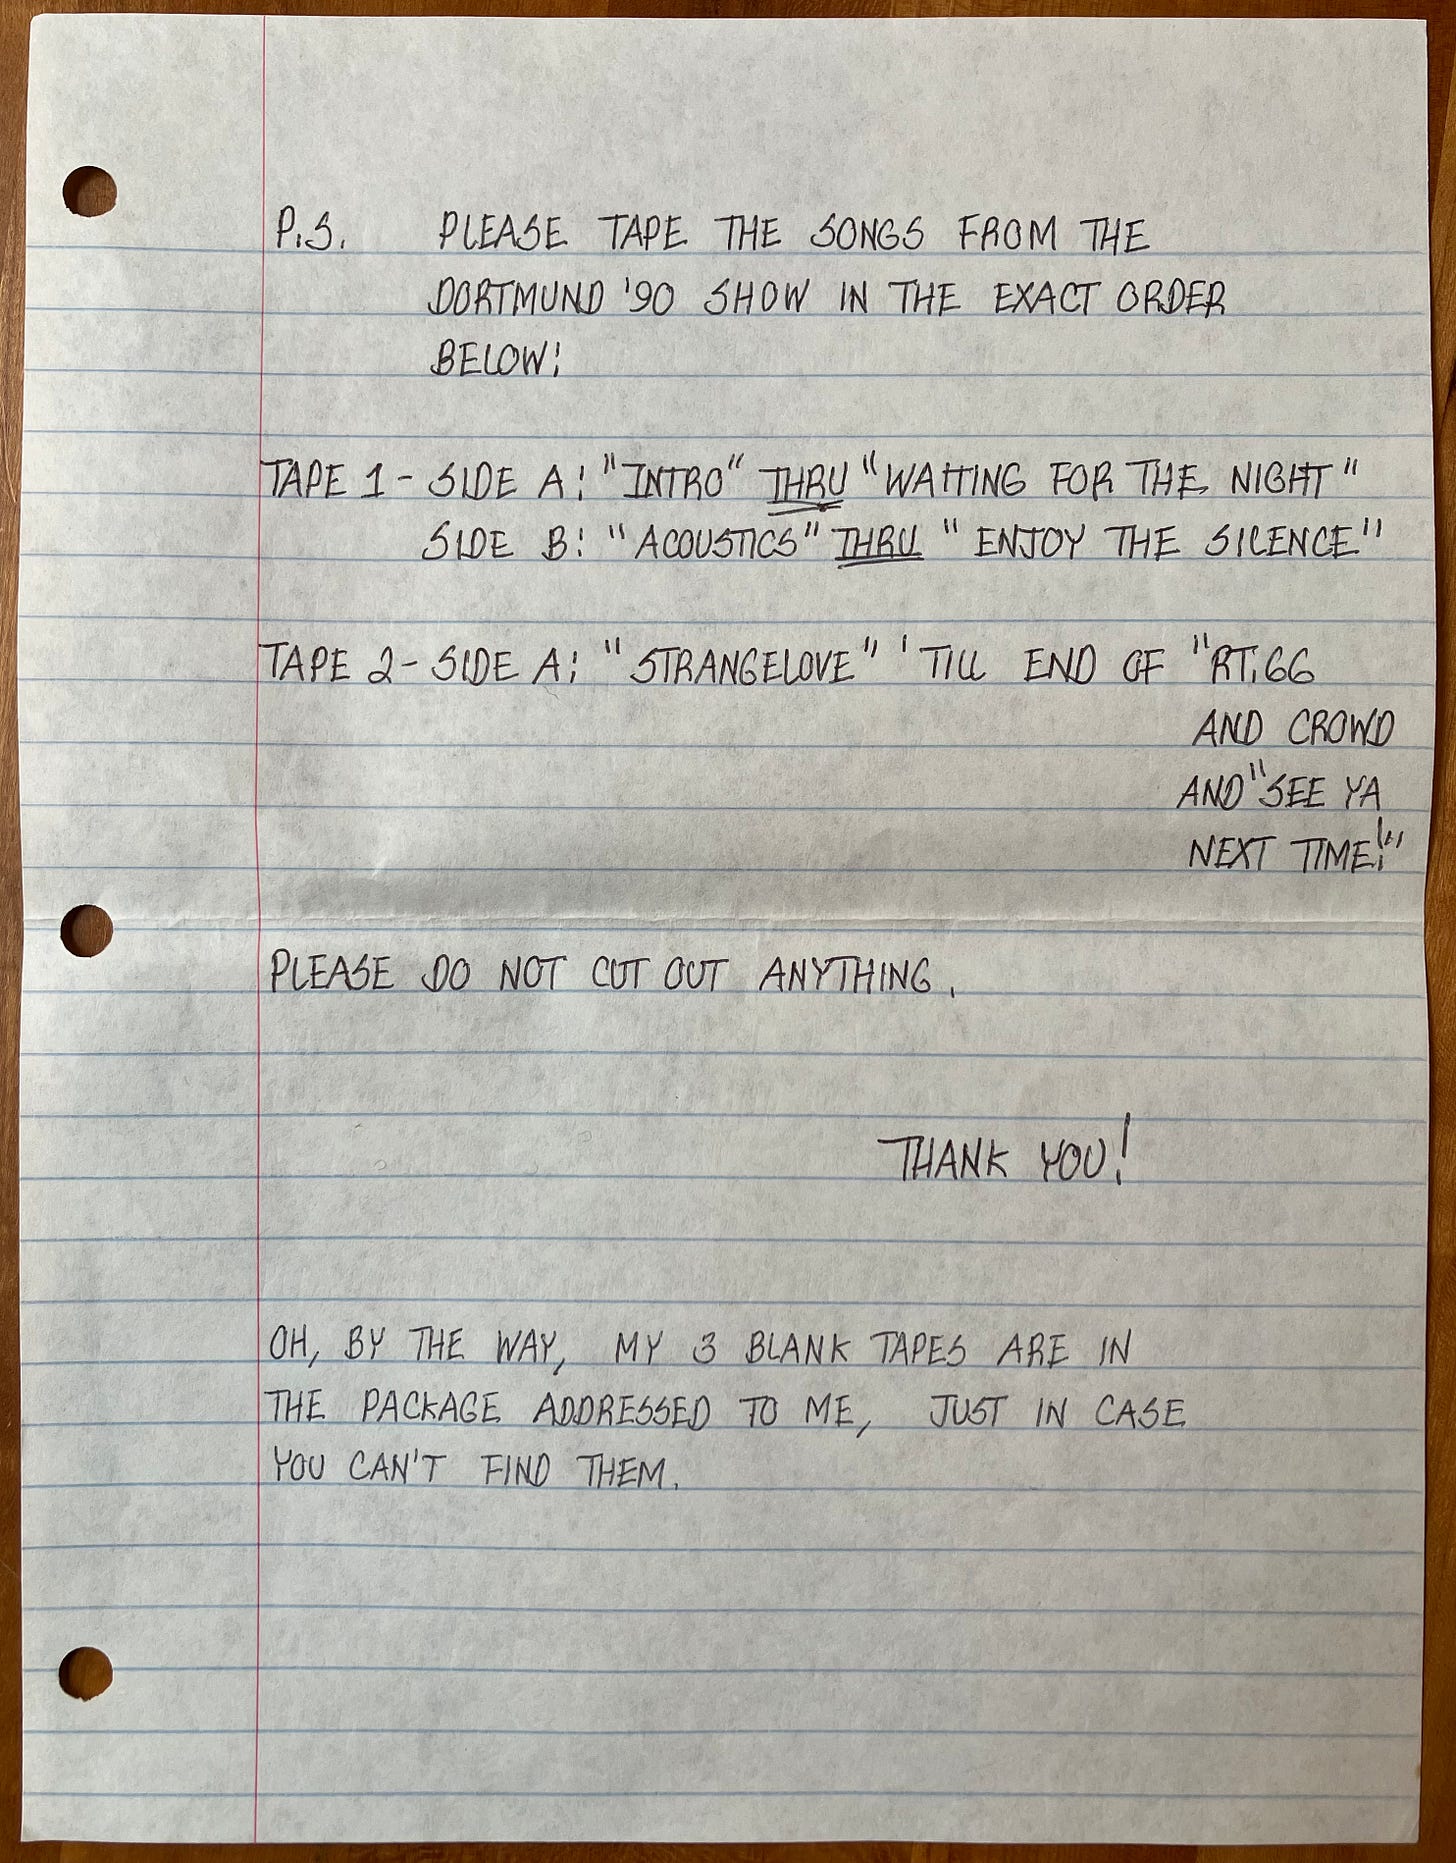 P.S. PLEASE TAPE THE SONGS FROM THE
DORTMUND '90 SHOW IN THE EXACT ORDER
BELOW:
TAPE 1 - SIDE A: "INTRO" THRU "WAITING FOR THE NIGHT"
SIDE B: "ACOUSTICS" THRU "ENJOY THE SILENCE"
TAPE 2 - SIDE A: "STRANGELOVE" 'TILL END OF "RT.66
AND CROWD
AND "SEE YA
NEXT TIME!""
PLEASE DO NOT CUT OUT ANYTHING.
THANK YOU!
OH, BY THE WAY, MY 3 BLANK TAPES ARE IN
THE PACKAGE ADDRESSED TO ME, JUST IN CASE
YOU CAN'T FIND THEM.